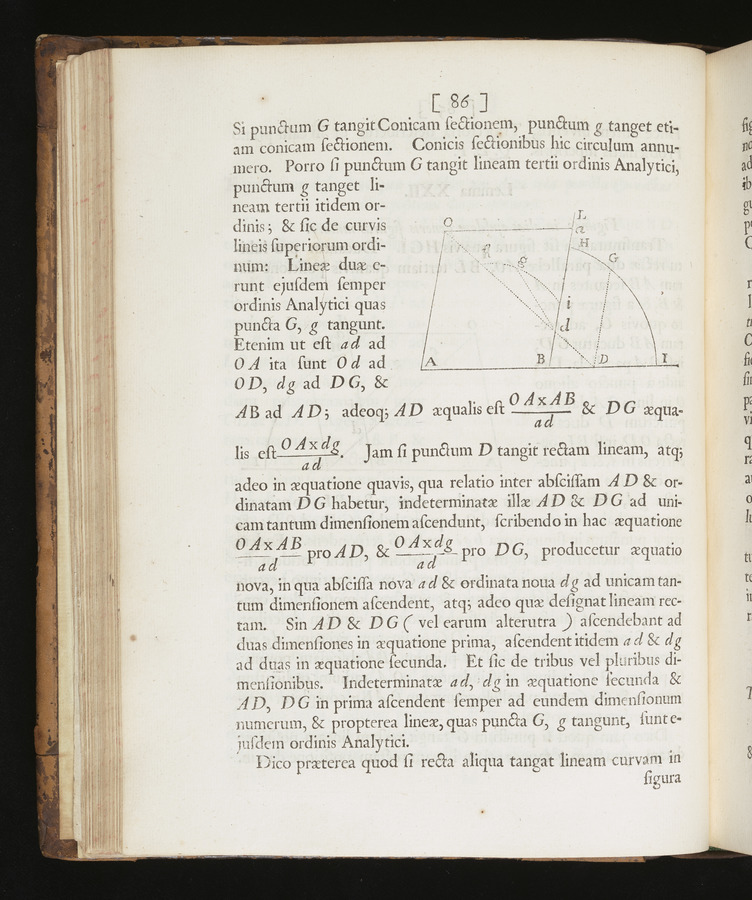 [ 86 ]
Si punctum G tangit Conicam ſectionem, punctum g tanget eti-
am conicam ſectionem. Conicis ſectionibus hic circulum annu-
mero. Porro ſi punctum G tangit lineam tertii ordinis Analytici,
punctum g tanget li-
neam tertii itidem or-
dinis; & ſic de curvis
lineis ſuperiorum ordi-
num: Lineæ duæ e-
runt ejuſdem ſemper
ordinis Analytici quas
puncta G, g tangunt.
Etenim ut eſt ad ad
OA ita ſunt Od ad
OD, dg ad DG, &
AB ad AD; adeoq; AD æqualis eſt OAxAB/ad & DG æqua-
lis eſt OAxdg/ad. Jam ſi punctum D tangit rectam lineam, atq;
adeo in æquatione quavis, qua relatio inter abſciſſam AD & or-
dinatam DG habetur, indeterminatæ illæ AD & DG ad uni-
cam tantum dimenſionem aſcendunt, ſcribendo in hac æquatione
OAxAB/ad pro AD, & OAxdg/ad pro DG, producetur æquatio
nova, in qua abſciſſa nova ad & ordinata noua dg ad unicam tan-
tum dimenſionem aſcendent, atq; adeo quæ deſignat lineam rec-
tam. Sin AD & DG ( vel earum alterutra ) aſcendebant ad
duas dimenſiones in æquatione prima, aſcendent itidem ad & dg
ad duas in æquatione ſecunda. Et ſic de tribus vel pluribus di-
menſionibus. Indeterminatæ ad, dg in æquatione ſecunda &
AD, DG in prima aſcendent ſemper ad eundem dimenſionum
numerum, & propterea lineæ, quas puncta G, g tangunt, ſunt e-
juſdem ordinis Analytici.
Dico præterea quod ſi recta aliqua tangat lineam curvam in
figura
O
L
a
H
h
g
G
i
d
A
B
D
I